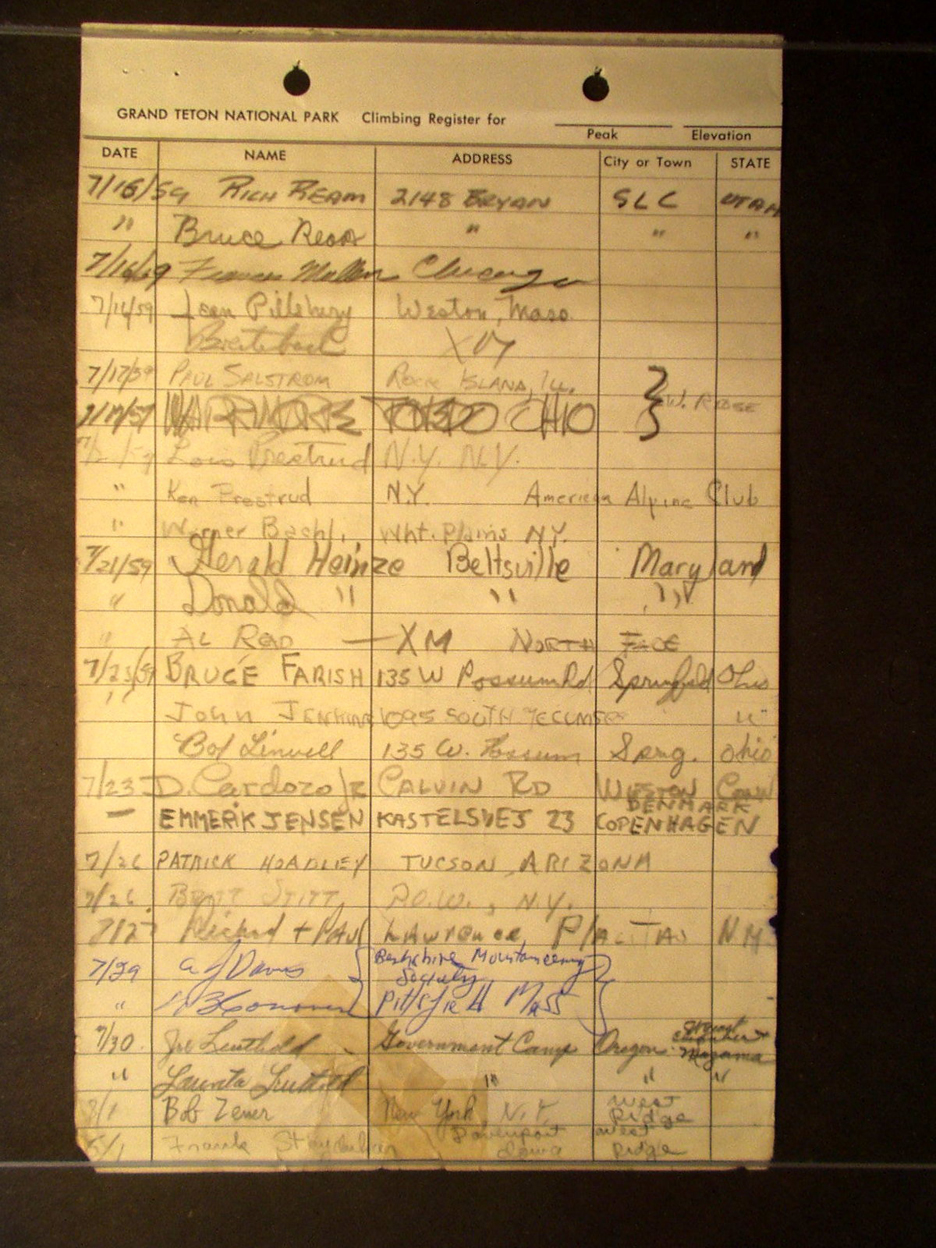 GRAND TETON NATIONAL PARK Climbing Register for
Peak Elevation
DATE NAME ADDRESS City or Town STATE
7/16/59 RICH REAM 2148 BRYAN SLC UTAH
" Bruce " " "
7/16/59 Chicago
7/16/59 Jean Pillsbury Weston, Mass.
7/17/59 PAUL SALSTROM ROCK ISLAND, ILL.
W. RIDGE
7/17/59 OHIO
Lois Prestrud N.Y. N.Y.
" Ken Prestrud N.Y. American Alpine Club
" Werner Bachl. Wht. Plains N.Y.
7/21/59 Herald Heinze Beltsville Maryland
" Donald " " "
" AL READ — XM NORTH FACE
7/23/59 BRUCE FARISH 135 W Possum Rd Springfield Ohio
" John JENKINS 1095 SOUTH TECUMSEH "
Bob Linwell 135 W. Possum Spng. Ohio
7/23 D. Cardozo Jr CALVIN RD WESTON CONN
DENMARK
— EMMERIK JENSEN KASTELSVEJ 23 COPENHAGEN
7/26 PATRICK HOADLEY TUCSON, ARIZONA
7/26 STITT P.O.W., N.Y.
7/27 Richard + PAUL LAWrence PLACITAS N.M.
7/29 Davis Berkshire Mountaineering
Society
" Pittsfield MASS
7/30 Joe Leuthold Government Camp Oregon Mazama
" Leuthold " " "
8/1 Bob Zener New York N.Y. West
Ridge
8/1 Frank Davenport West
Iowa Ridge